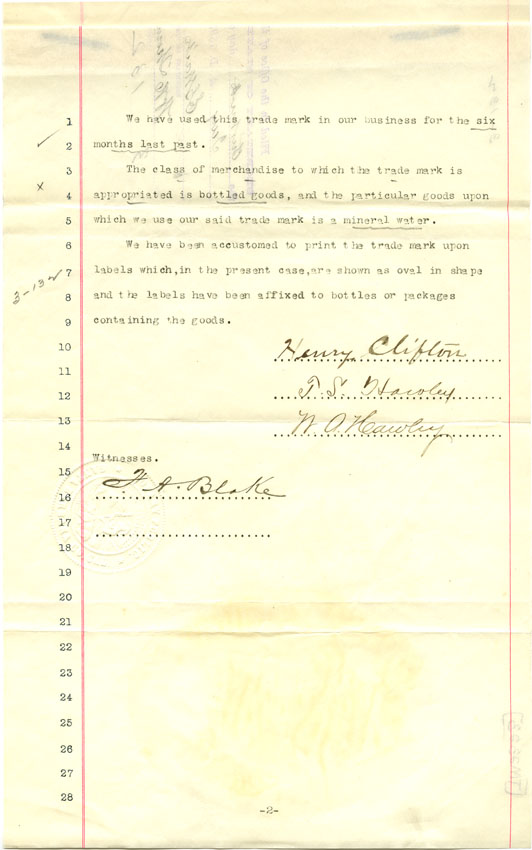 1 We have used this trade mark in our business for the six
2 months last past.
3 The class of merchandise to which the trade mark is
4 appropriated is bottled goods, and the particular goods upon
5 which we use our said trade mark is a mineral water.
6 We have been accustomed to print the trade mark upon
7 labels which,in the present case,are shown as oval in shape
3-13
8 and the labels have been affixed to bottles or packages
9 containing the goods.
10 Henry Clifton
11
12 T. S. Hawley
13 W. O. Hawley
14 Witnesses.
15
16 F. A. Blake
17
18
19
20
21
22
23
24
25
26
27
28
-2-